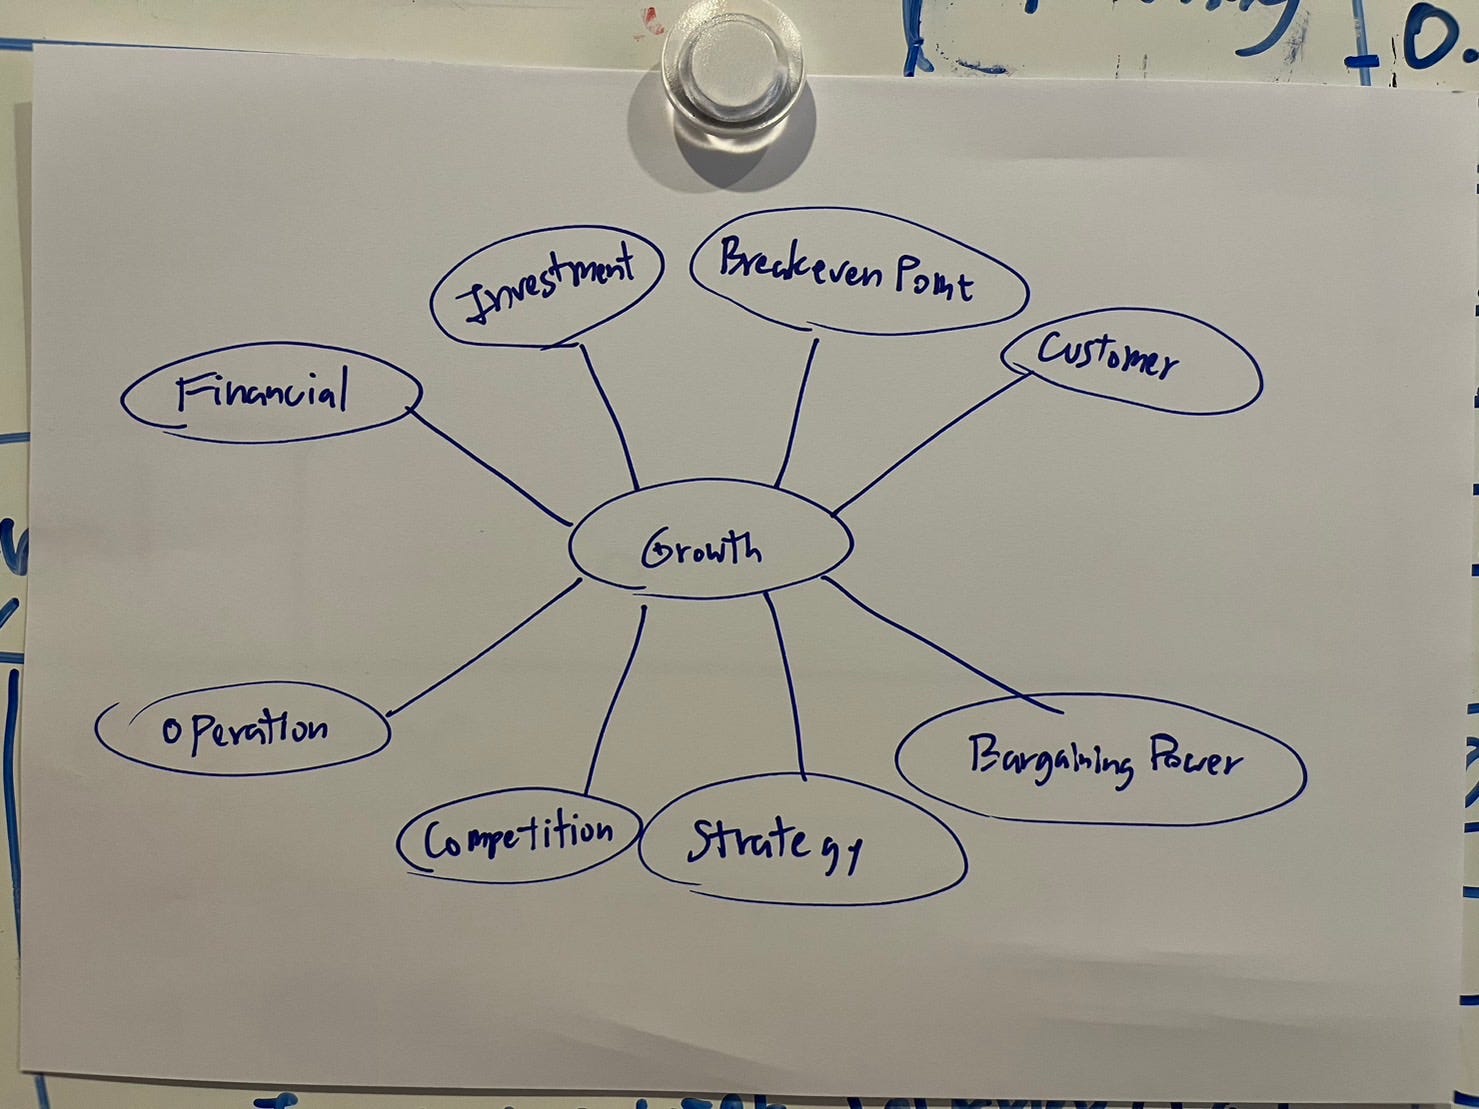 Investment
Breakeven Point
Customer
Financial
Growth
Operation
Bargaining Power
Competition
Strategy